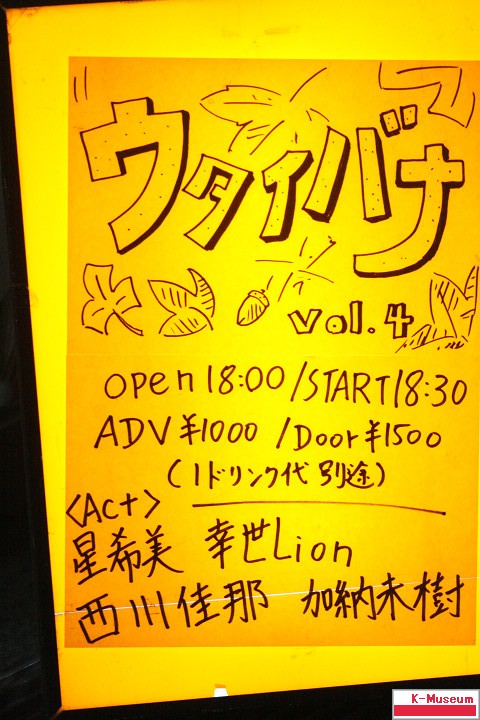 ウタイバナ
vol.4
open18:00/START18:30
ADV¥1000/Door¥1500
(1ドリンク代別途)
<Act>
星希美 幸世Lion
西川佳那 加納未樹
K-Museum